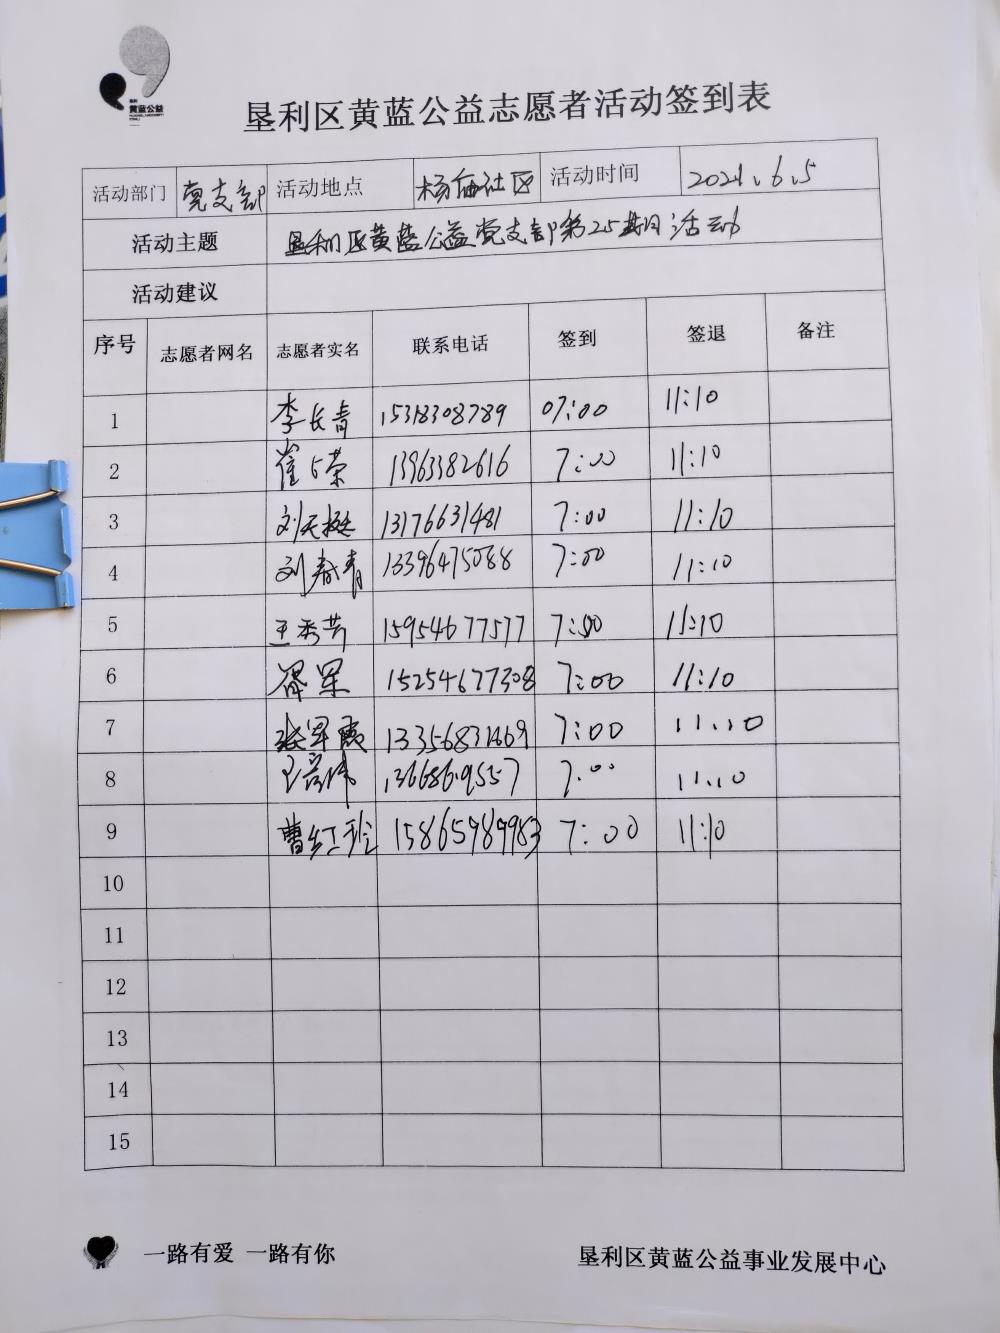 垦利
黄蓝公益
垦利区黄蓝公益志愿者活动签到表
活动部门 党支部 活动地点 杨庙社区 活动时间 2021.6.5
活动主题 垦利区黄蓝公益党支部第25期日活动
活动建议
序号 志愿者网名 志愿者实名 联系电话 签到 签退 备注
1 李长青 15318308789 07:00 11:10
2 崔 荣 13963382616 7:00 11:10
3 刘天挺 13176631481 7:00 11:10
4 刘春青 13396475088 7:00 11:10
5 王秀芳 15954677577 7:00 11:10
6 军 15254677308 7:00 11:10
7 张军霞 7:00 11.10
8 王 伟 7.00 11.10
9 曹红玲 15865989983 7:00 11:10
10
11
12
13
14
15
一路有爱 一路有你 垦利区黄蓝公益事业发展中心